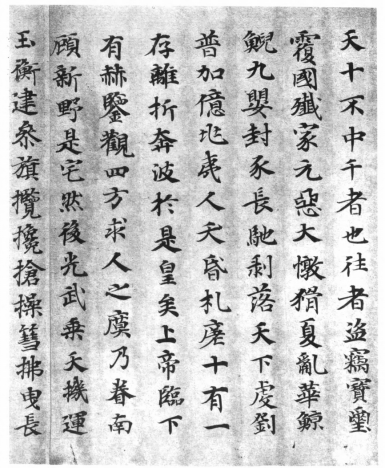 天十不中千者也往者盜竊寶璽
覆國殲家元惡大憝猾夏亂華鯨
鯢九嬰封豕長馳剥落天下虔劉
普加億兆夷人夭昏札瘥十有一
存離折奔波於是皇矣上帝臨下
有赫鑒觀四方求人之瘼乃眷南
顧新野是宅然後光武乘天機運
玉衡建參旗攬攙搶操篲拂曳長